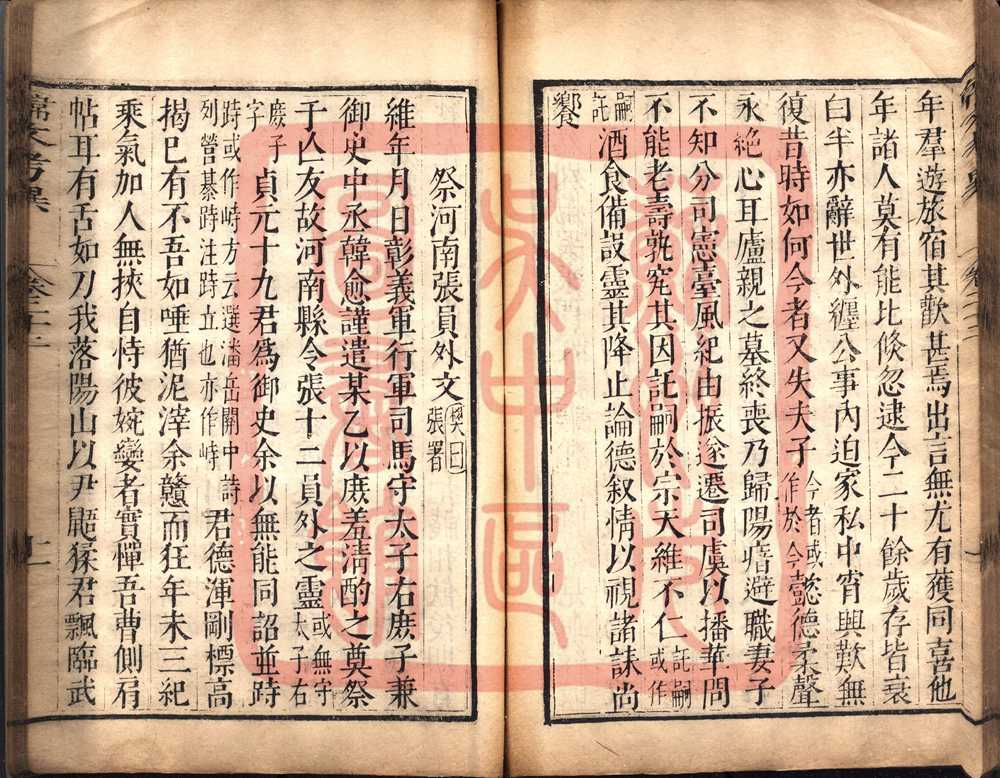 年羣遊旅宿其歡甚焉出言無尤有獲同喜他
年諸人莫有能比倐忽逮今二十餘歲存皆衰
白半亦辭世外纏公事內迫家私中宵興歎無
復昔時如何今者又失夫子今者或作於今懿德柔聲
永絕心耳廬親之墓終喪乃歸陽瘖避職妻子
不知分司憲臺風紀由振遂遷司虞以播華問
不能老壽孰究其因託嗣於宗天維不仁託嗣或作嗣託
酒食備設靈其降止論德叙情以視諸誄尚
饗
祭河南張員外文樊曰張署
維年月日彰義軍行軍司馬守太子右庶子兼
御史中丞韓愈謹遣某乙以庶羞清酌之奠祭
于亾友故河南縣令張十二員外之靈或無守太子右庶子
字貞元十九君爲御史余以無能同詔並跱
跱或作峙方云選潘岳關中詩列營棊跱注跱立也亦作峙君德渾剛標高
揭巳有不吾如唾猶泥滓余戇而狂年未三紀
乘氣加人無挾自恃彼婉孌者實憚吾曹側肩
帖耳有舌如刀我落陽山以尹鼯猱君飄臨武
韓文考異
卷二十二
十一